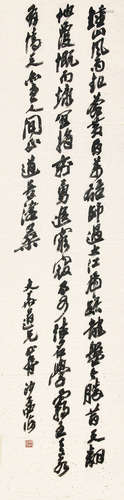 鍾山風雨起蒼黃百萬雄師過大江虎踞龍盤今勝昔天翻
地覆慨而慷宜將剩勇追窮寇不可沽名學霸王天若
有情天亦老人間正道是滄桑
沙孟海